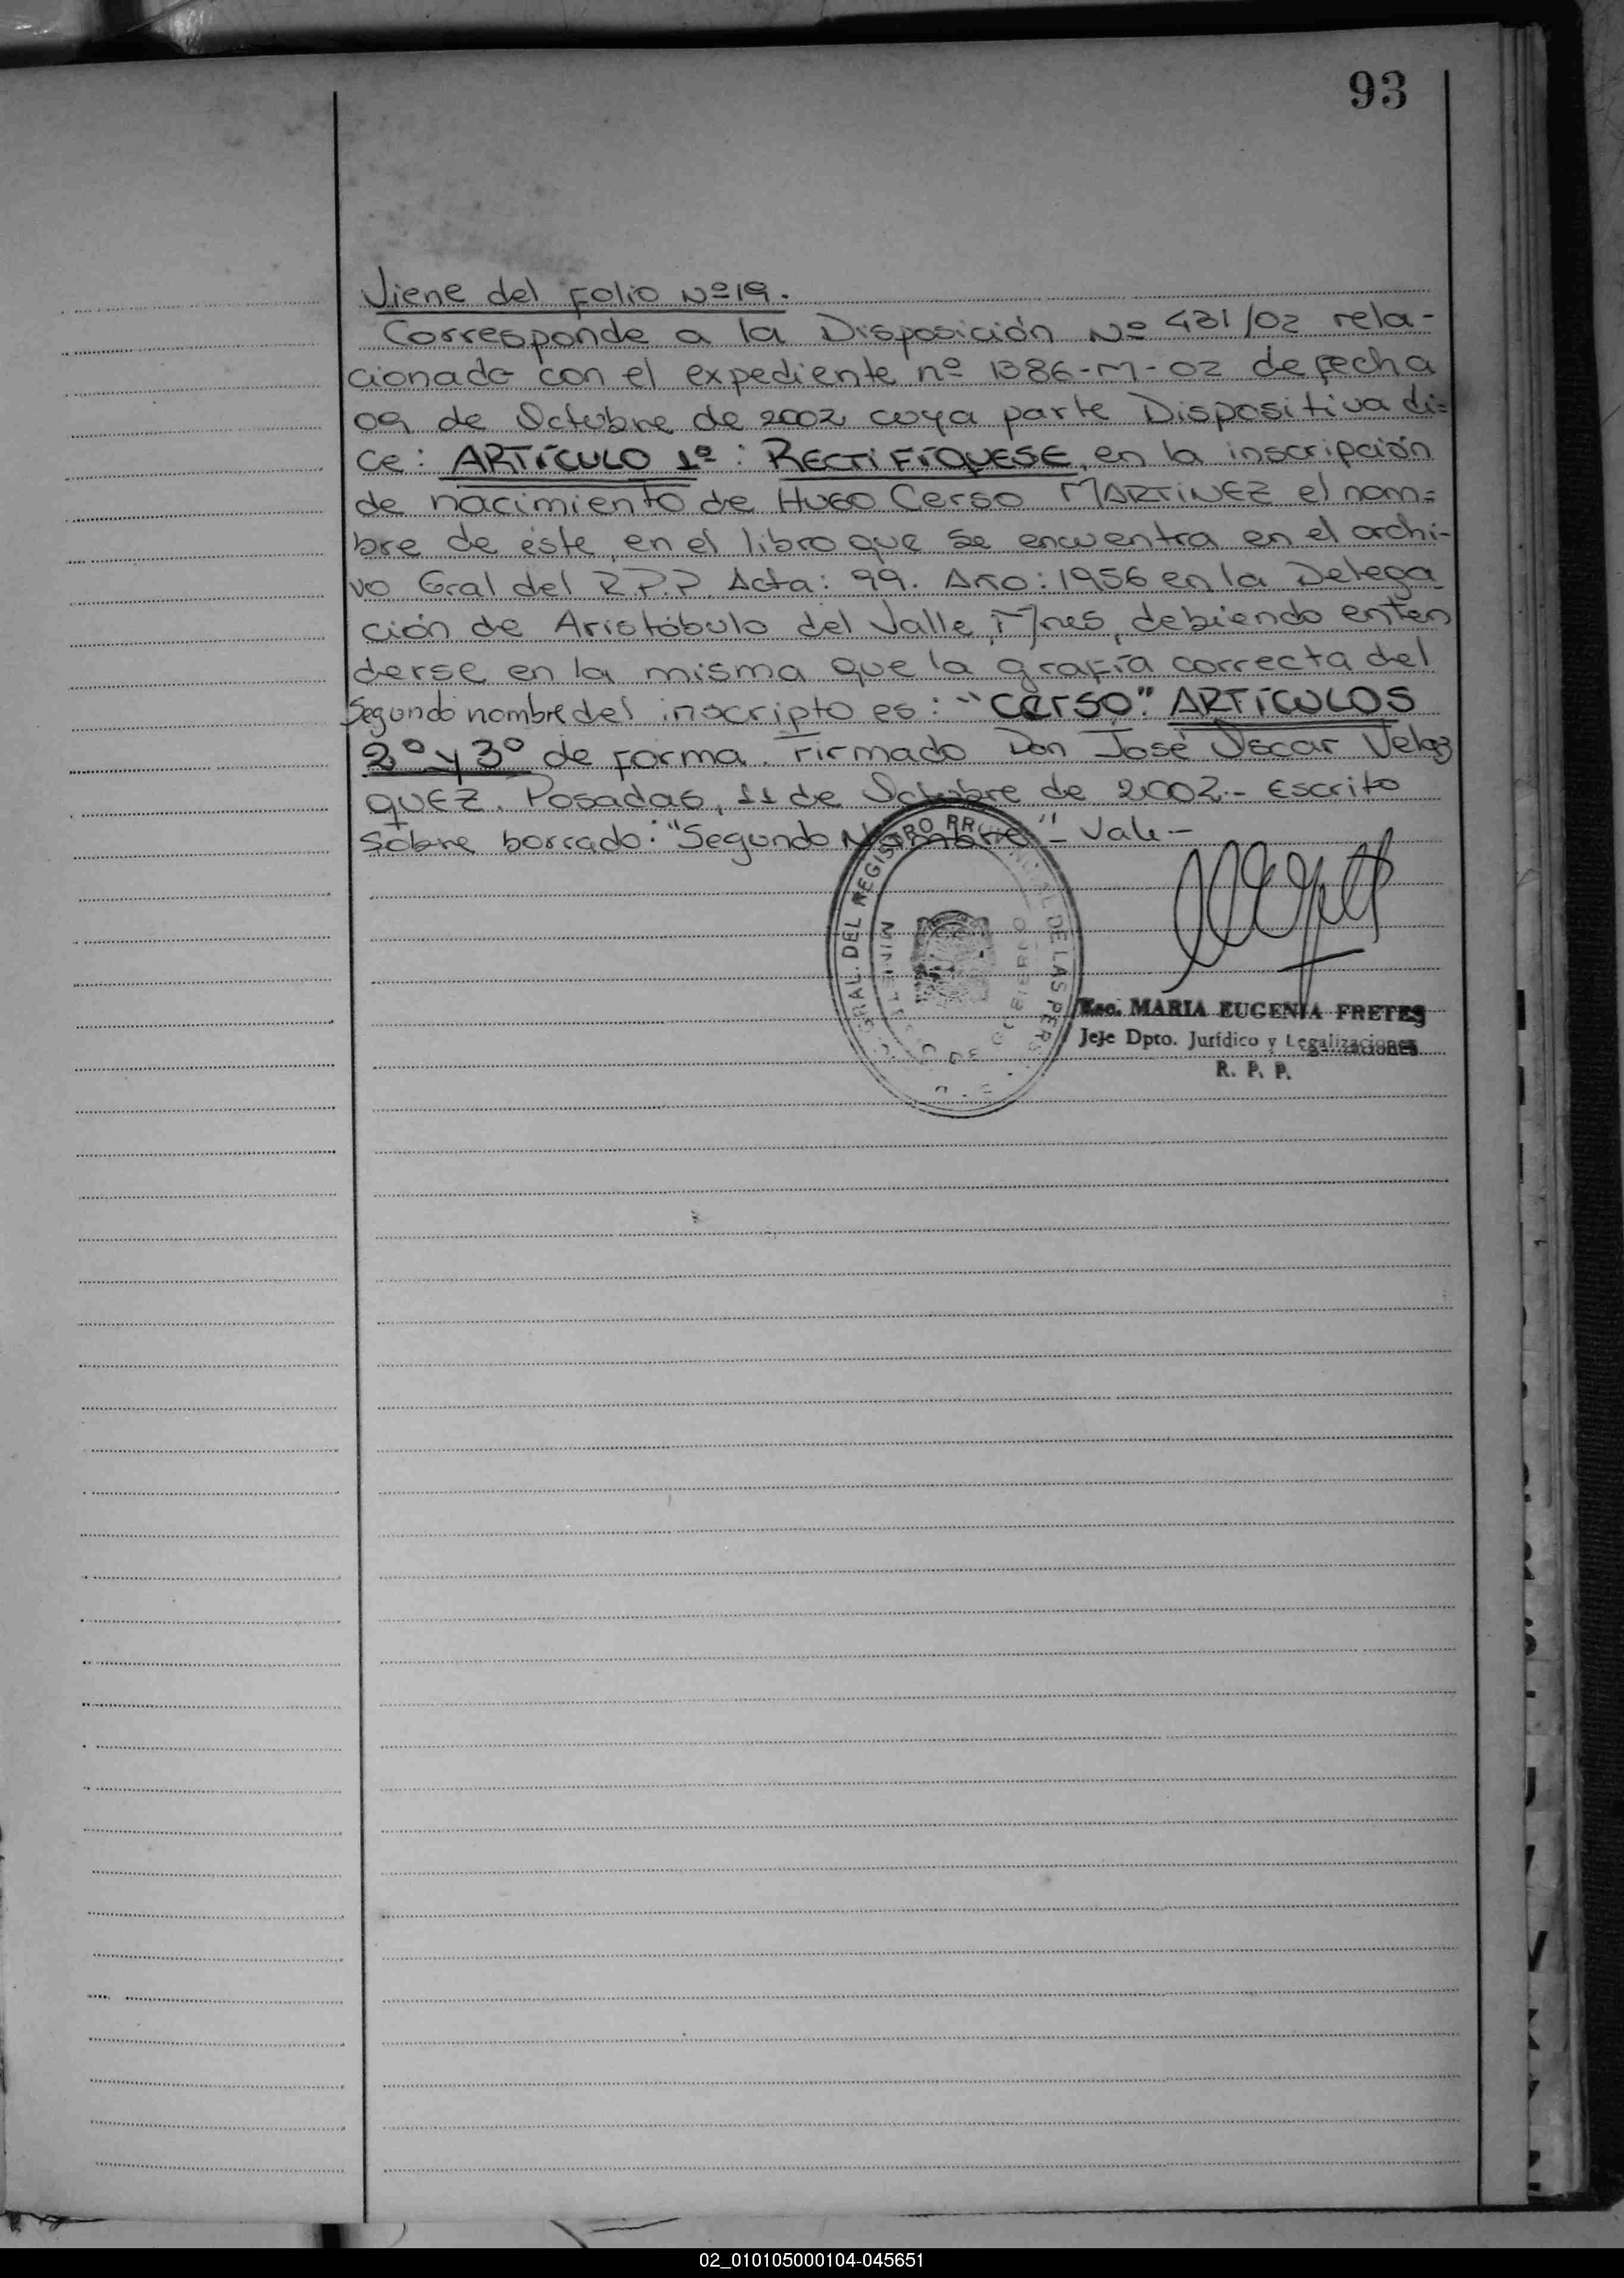 93
Viene del Folio Nº 19.
Corresponde a la Disposición Nº 431/02 rela-
cionado con el expediente nº 1386-M-02 de fecha
09 de Octubre de 2002 cuya parte Dispositiva di=
ce: ARTÍCULO 1º: RECTIFÍQUESE, en la inscripción
de nacimiento de HUGO Cerso MARTINEZ el nom=
bre de éste, en el libro que se encuentra en el archi-
vo Gral del R.P.P. Acta: 99. Año: 1956 en la Delega
ción de Aristóbulo del Valle, Mnes, debiendo enten
derse en la misma que la grafía correcta del
Segundo nombre del inscripto es: "Cerso". ARTÍCULOS
2º y 3º de forma. Firmado Don José Oscar Velaz
quez. Posadas, 11 de Octubre de 2002.- Escrito
sobre borrado: "Segundo Nombre"- Vale-
GRAL. DEL REGISTRO PROVINCIAL DE LAS PERS
MINISTERIO DE GOBIERNO
Esc. MARIA EUGENIA FRETES
Jefe Dpto. Jurídico y Legalizaciones
R. P. P.
02_010105000104-045651